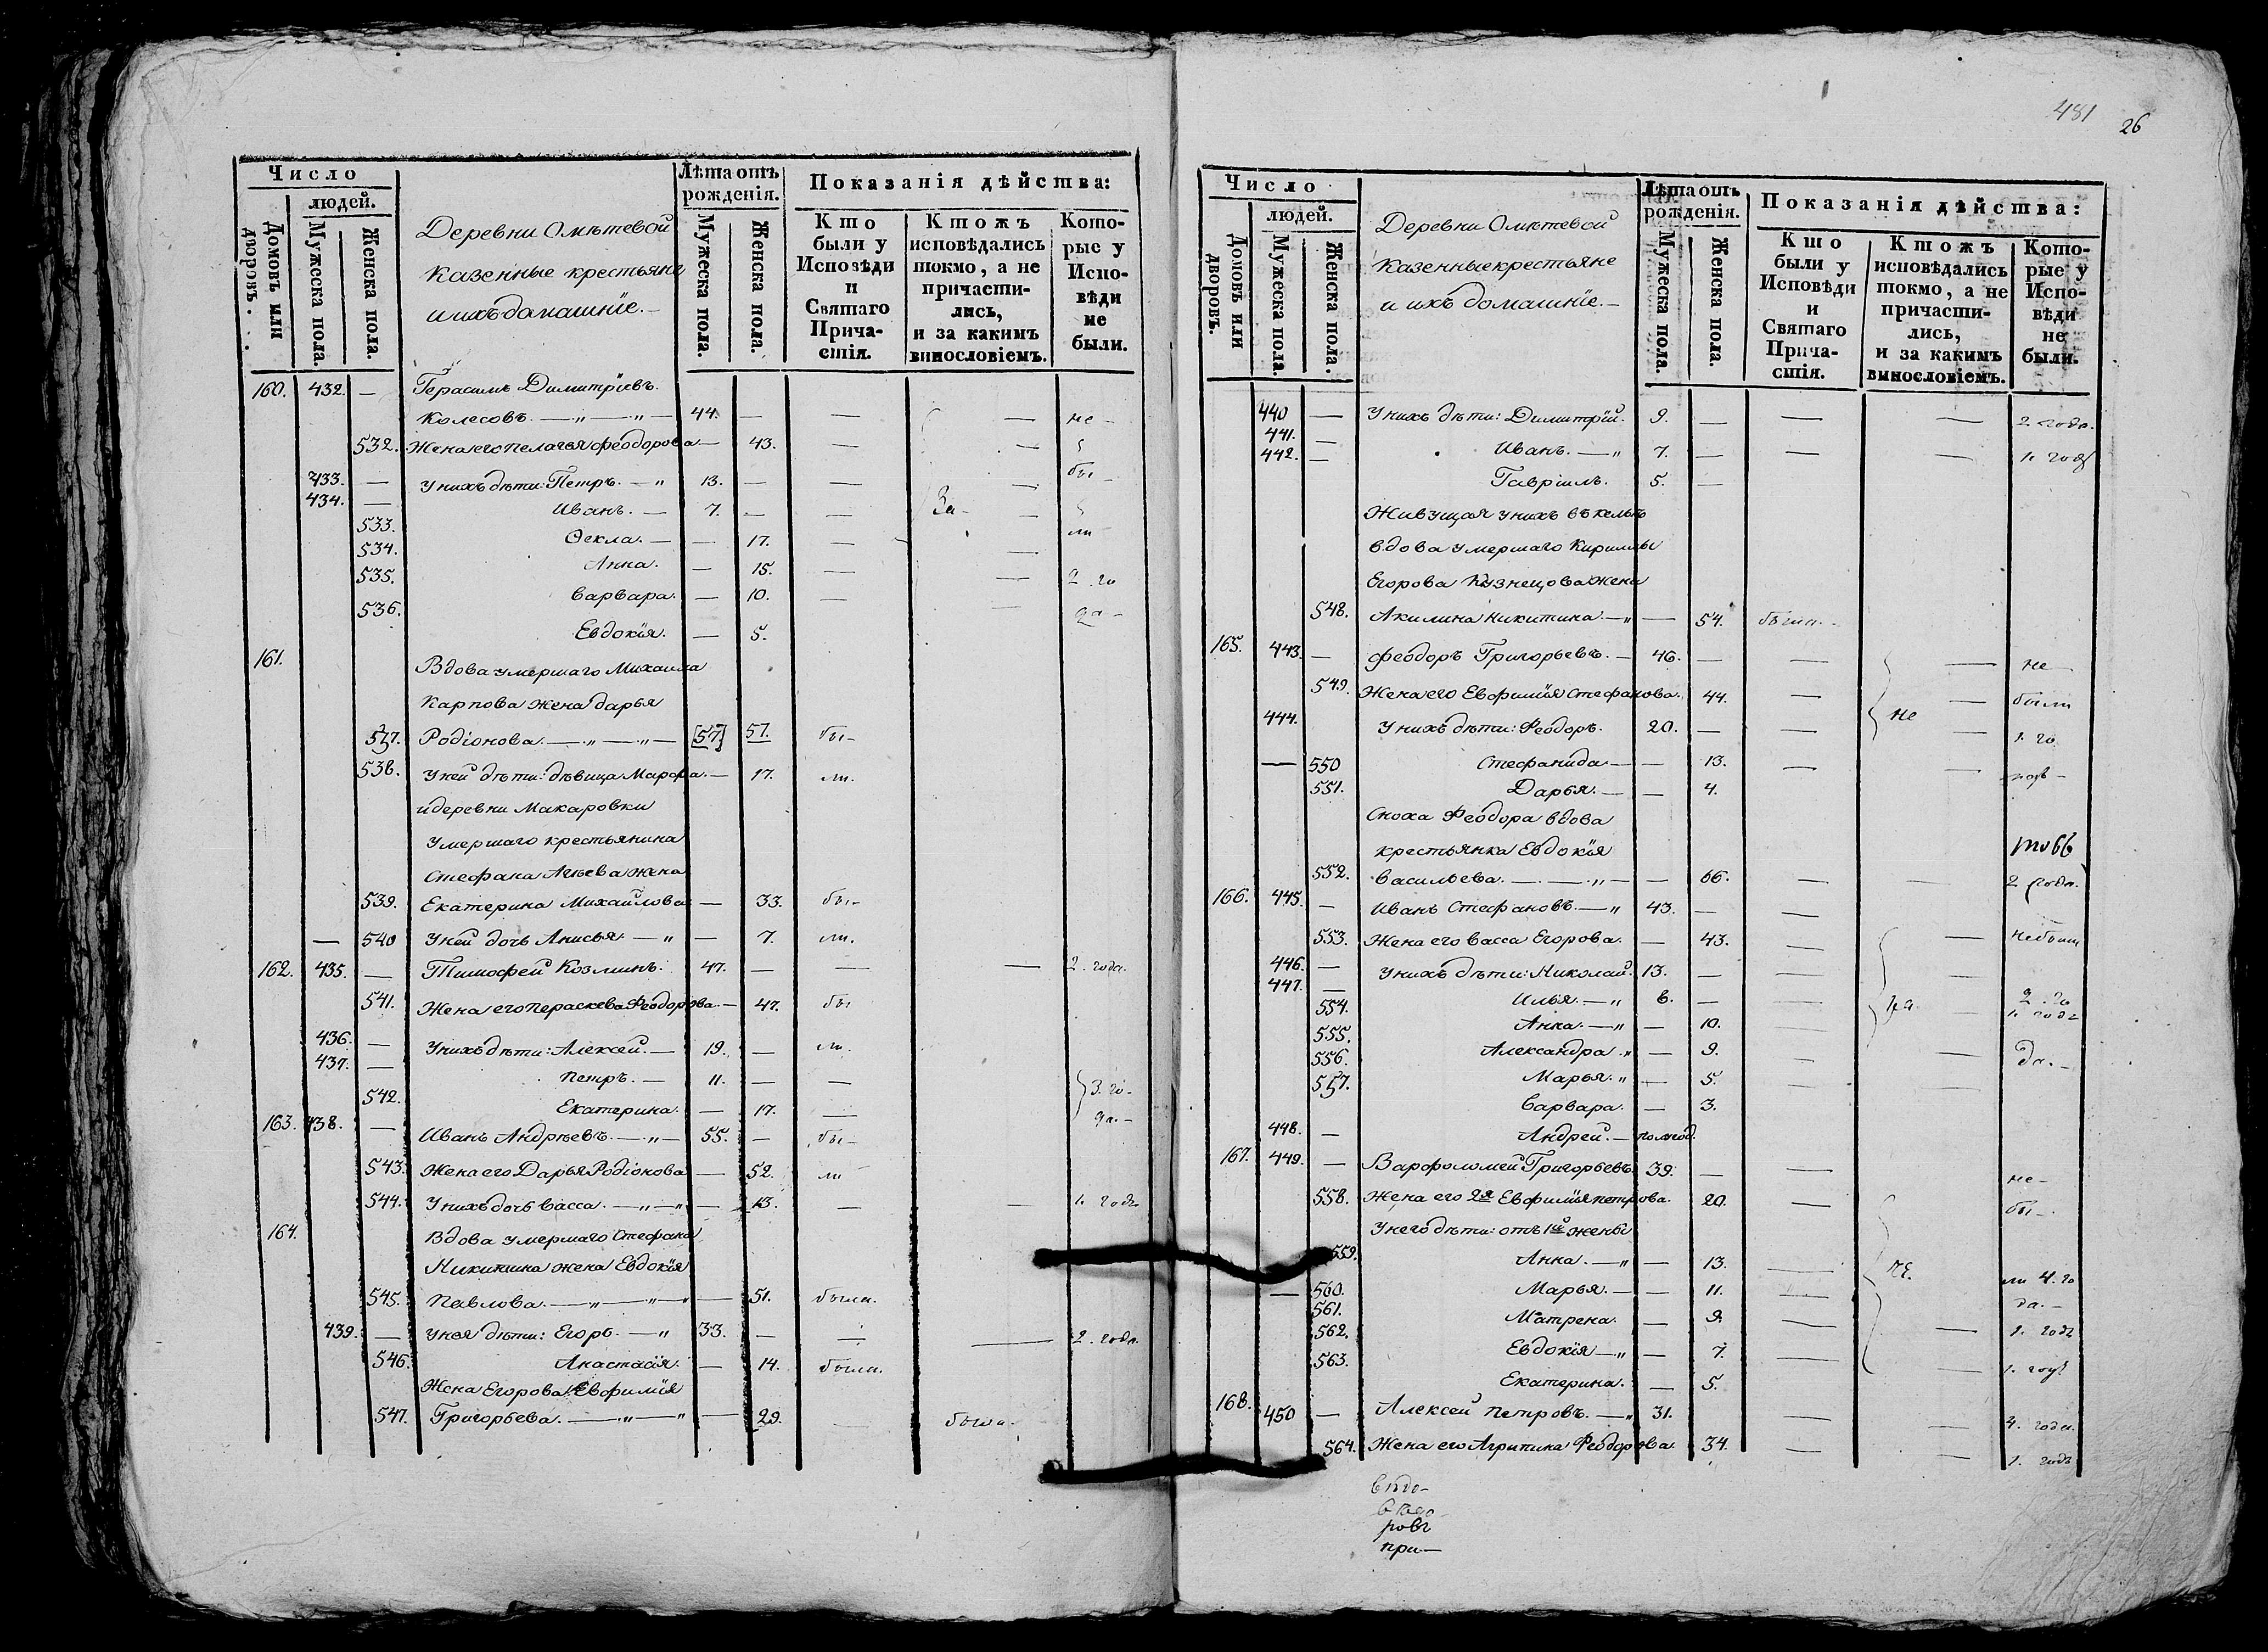 Число
людей.
Домовъ или дворовъ.
Мужеска пола.
Женска пола.
Деревни Омѣтевой
казенные крестьяне
и ихъ домашніе.—
Лѣта отъ рожденія.
Мужеска пола.
Женска пола.
Показанія дѣйства:
Кто были у Исповѣди и Святаго Прича-стія.
Ктожъ исповѣдались токмо, а не причасти-лись, и за какимъ винословіемъ.
Кото-рые у Испо-вѣди не были.
160. 432. — Герасимъ Димитріевъ.
Колесовъ. — „ — „ — 44. — — — не —
532. Жена его Пелагья Феодорова — 43. — —
433. — У нихъ дѣти: Петръ. — „ 13. — — бы —
434. — Иванъ. — 7. — — За — —
533. Өекла. — — 17. — ли
534. Анна. — 15. — — 2. го
535. Варвара. — 10. — — да —
536. Евдокія. — 5.
161. Вдова умершаго Михаила
Карпова жена Дарья
537. Родіонова. — „ — „ — [57] 57. бы —
538. У ней дѣти: дѣвица Марфа. — 17. ли.
и деревни Макаровки
умершаго крестьянина
Стефана Агѣева жена
539. Екатерина Михайлова — 33. бы —
— 540 У ней дочь Анисья. — „ — 7. ли.
162. 435. — Тимофей Козминъ. 47. — — — 2. года.
541. Жена его Пераскева Феодорова. — 47. бы
436. — У нихъ дѣти: Алексей. — 19. — ли.
437. — Петръ. — 11. — — 3. го —
542. Екатерина. — 17. — да. —
163. 438. — Иванъ Андрѣевъ. — „ — 55. — бы —
543. Жена его Дарья Родіонова — 52. ли
544. У нихъ дочь Васса. — „ — „ — 13. — — 1. годъ
164. Вдова умершаго Стефана
Никитина жена Евдокія
545. Павлова. — „ — „ — „ — 51. была.
439. — У нея дѣти: Егоръ. — „ 33. — — — 2. года.
546. Анастасія. — 14. была.
Жена Егорова Евфимія
547. Григорьева. — „ — „ — 29. была.
481
26
Число
людей.
Домовъ или дворовъ.
Мужеска пола.
Женска пола.
Деревни Омѣтевой
казенные крестьяне
и ихъ домашніе. —
Лѣта отъ рожденія.
Мужеска пола.
Женска пола.
Показанія дѣйства:
Кто были у Исповѣди и Святаго Прича-стія.
Ктожъ исповѣдались токмо, а не причасти-лись, и за какимъ винословіемъ.
Кото-рые у Испо-вѣди не были.
440 — У нихъ дѣти: Димитрій. 9. — — — 2 года.
441. — Иванъ. — „ 7. — — — 1. годъ
442. — Гавріилъ. 5. —
Живущая у нихъ въ кельѣ
вдова умершаго Кириллы
Егорова Кузнецова жена
548. Акилина Никитина. — „ — 54. была. —
165. 443. — Феодоръ Григорьевъ. — 46. — — — не —
549. Жена его Евфимія Стефанова. 44. — — были
444. У нихъ дѣти: Феодоръ. 20. — — не — 1. го
— 550 Стефанида — — 13. — —
551. Дарья. — — 4.
Сноха Феодора вдова
крестьянка Евдокія
552. Васильева. — — „ — — 66. — — 2 года.
166. 445. — Иванъ Стефановъ. — „ 43. — —
553. Жена его Васса Егорова. — 43. — — не были
446. — У нихъ дѣти: Николай. 13. — —
447. — Илья. — „ 6. — — 2. го
554. Анна. — „ — 10. — 1. годъ
555. Александра. „ — 9. — — да. —
556. Марья. „ — 5. — —
557. Варвара. — 3.
448. — Андрей. — полгод.
167. 449. — Варфоломей Григорьевъ. 39. — — не —
558. Жена его 2я Евфимія Петрова. 20. — бы —
У него дѣти: отъ 1й жены
559. Анна. — „ — 13. — ли 4. го
— 560. Марья. — — 11. — да. —
561. Матрена. — 9 — 1. годъ
562. Евдокія — „ — 7. — — 1. годъ
563. Екатерина. — 5.
168. 450 — Алексей Петровъ. — „ 31. — — 4. года.
564. Жена его Агрипина Феодорова. 34. — — 1. годъ
ровъ
при —